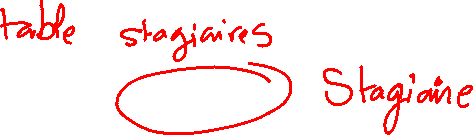 table stagiaires
Stagiaire